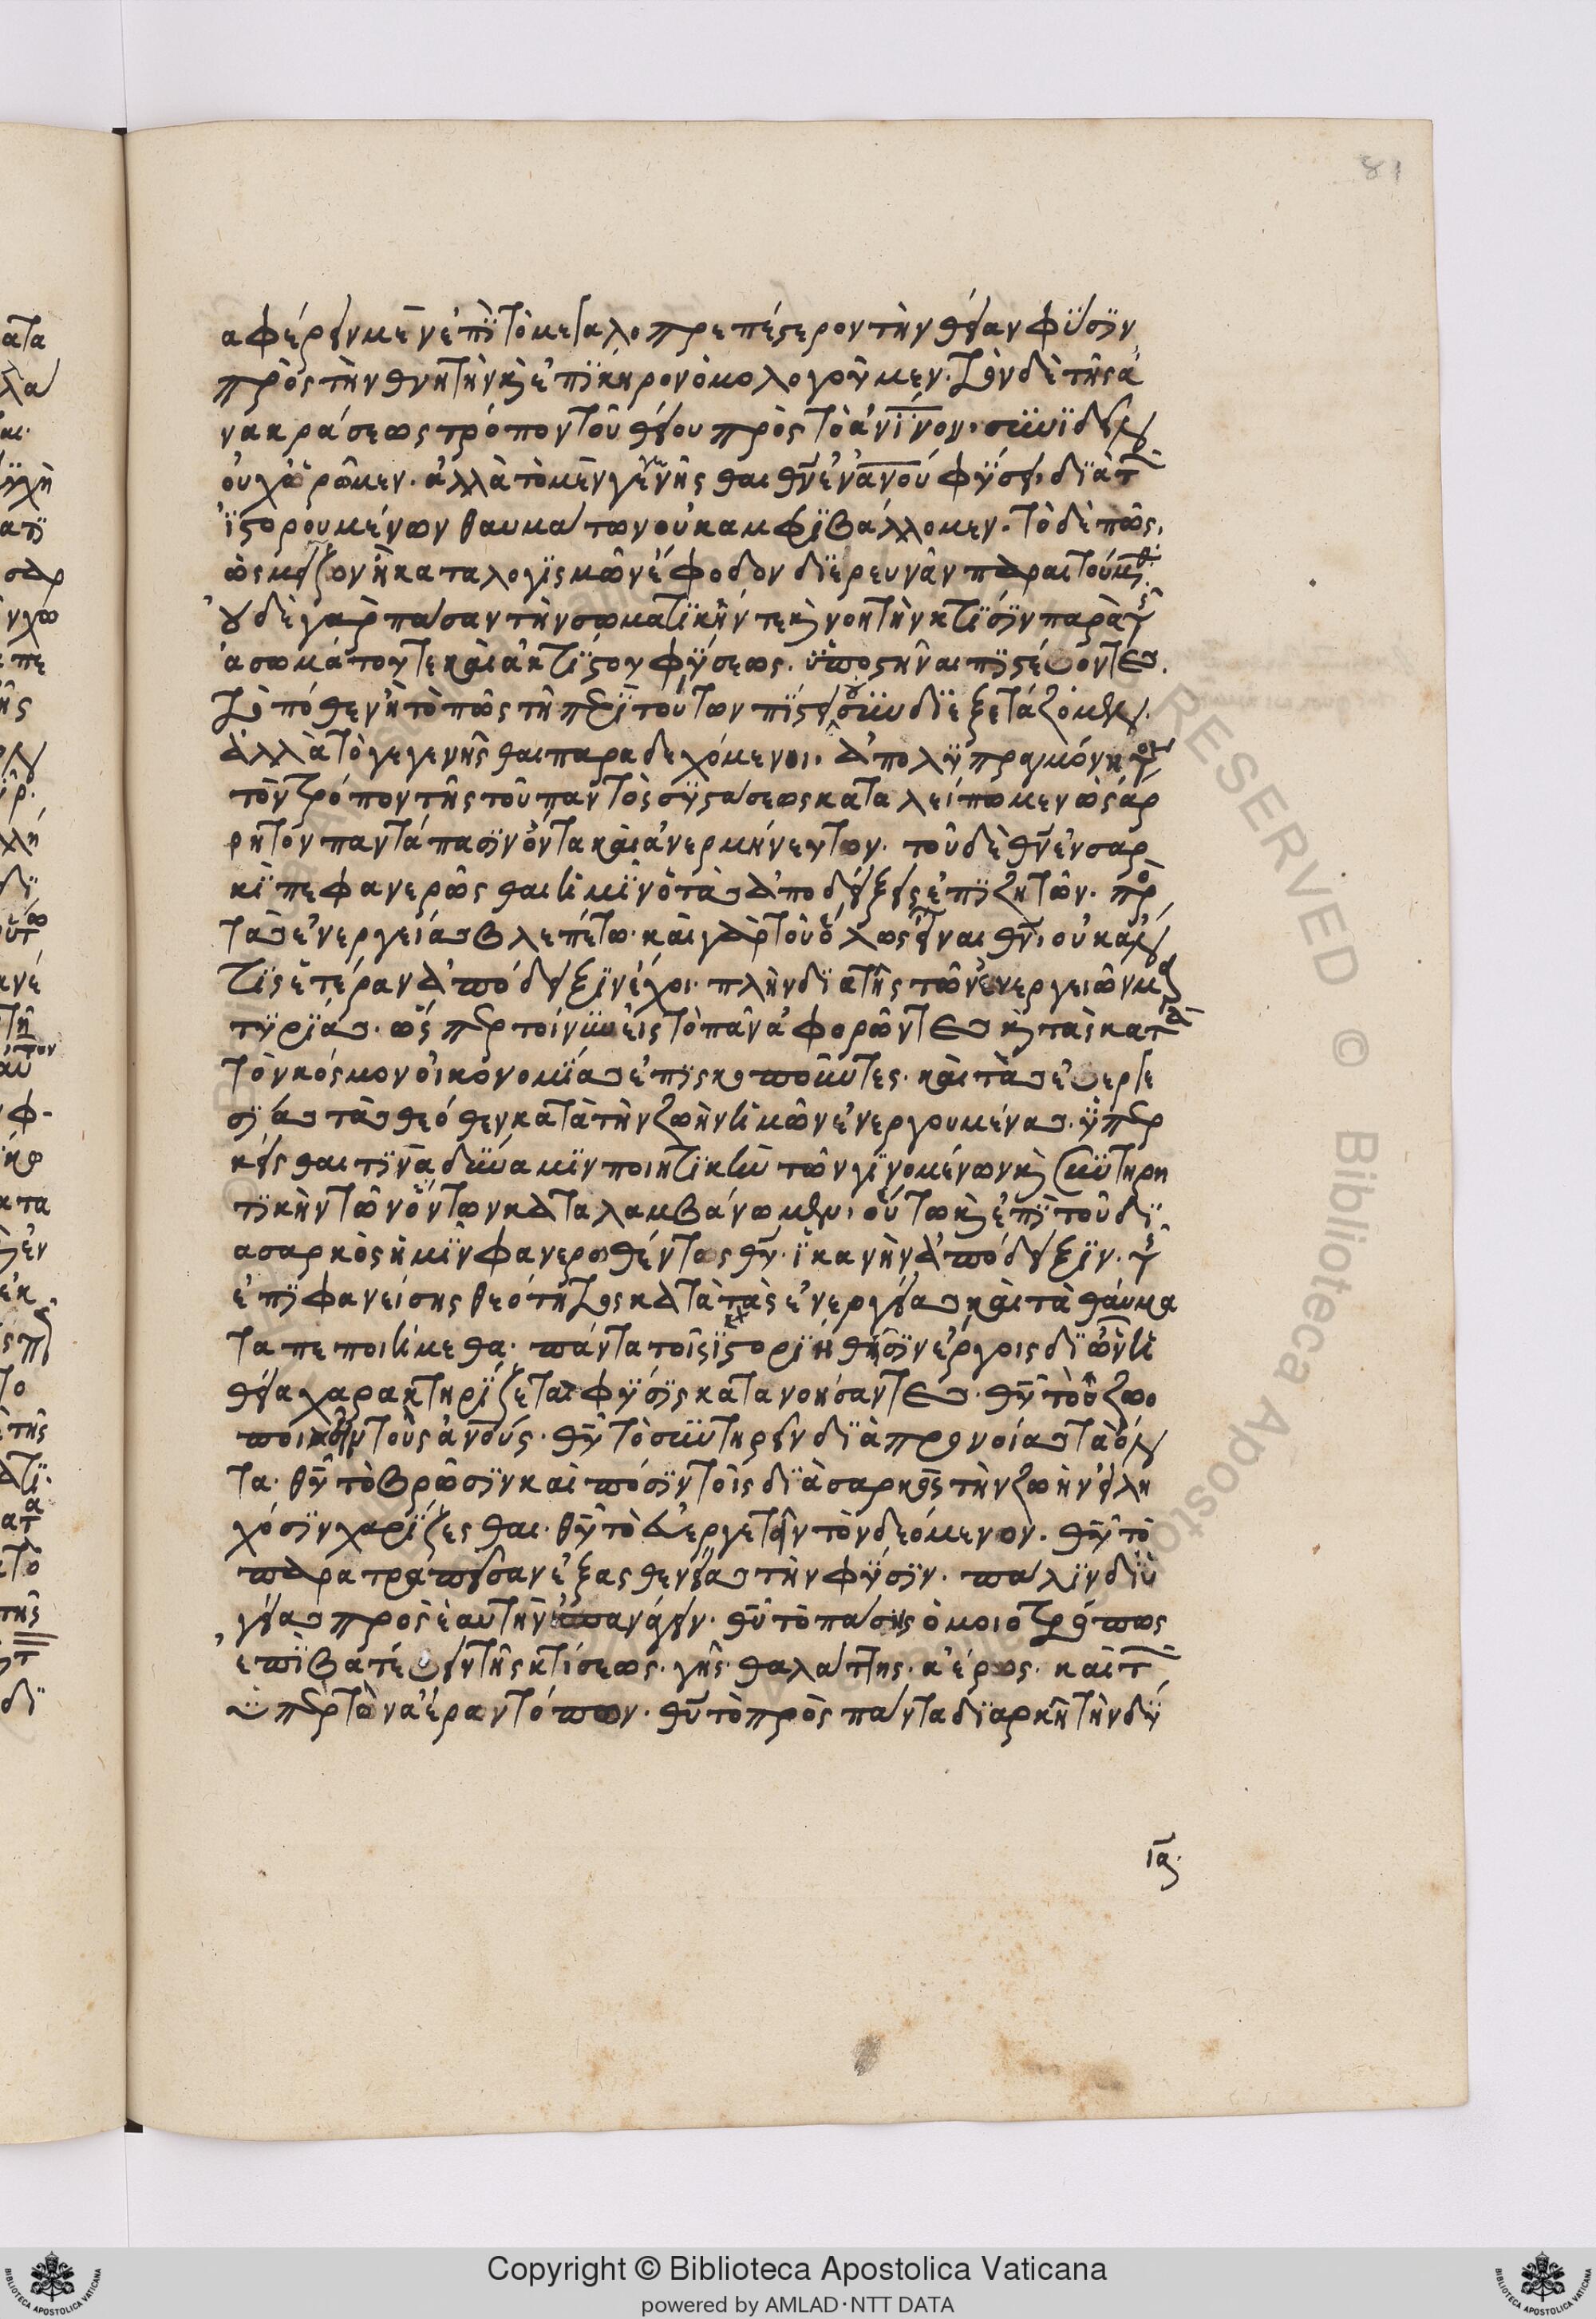 81
αφέρειν μὲν ἐπὶ τὸ μεγαλοπρεπέστερον τὴν θείαν φύσιν
πρὸς τὴν θνητὴν κ ἐπίκηρον ὁμολογοῦμεν. τὸν δὲ τῆς ἀ
νακράσεως τρόπον τοῦ θείου πρὸς τὸ ἀνινον. συνιδεῖν
οὐ χωροῦμεν. ἀλλὰ τὸ μὲν γεγενῆσθαι θν ἐν ἀνου φύσει, διὰ τ
ἱστορουμένων θαυμάτων οὐκ ἀμφιβάλλομεν. τὸ δὲ πῶς,
ὡς μεῖζον ἢ κατα λογισμῶν ἔφοδον διερευνᾶν παραιτούμεθ.
οὐδὲ γὰρ πᾶσαν τὴν σωματικήν τε κ νοητὴν κτίσιν παρὰ τ
ἀσωμάτου τε καὶ ἀκτίστου φύσεως. ὑποστῆναι πιστεύοντες.
τὸ πόθεν ἢ τὸ πῶς τῇ περὶ τούτων πίστει συνδιεξετάζομεν.
ἀλλὰ τὸ γεγενῆσθαι παραδεχόμενοι. ἀπολυπραγμόνητον
τὸν τρόπον τῆς τοῦ παντὸς συστάσεως καταλείπωμεν ὡς ἄρ
ρητον παντάπασιν ὄντα καὶ ἀνερμήνευτον. τοῦ δὲ θν ἐν σαρ
κὶ πεφανερῶσθαι ἡμῖν ὁ τὰς ἀποδείξεις ἐπιζητῶν. πρ
τὰς ἐνεργείας βλεπέτω. καὶ γὰρ τοῦ ὅλως εἶναι θν, οὐκ ἄν
τις ἑτέραν ἀπόδειξιν ἔχοι. πλὴν διὰ τῆς τῶν ἐνεργειῶν μα
τυρίας. ὥσπερ τοίνυν εἰς τὸ πᾶν ἀφορῶντες κ τὰς κατὰ
τὸν κόσμον οἰκονομίας ἐπισκοποῦντες. καὶ τὰς εὐεργε
σίας τὰς θεόθεν κατὰ τὴν ζωὴν ἡμῶν ἐνεργουμένας. ὑπερ
κεῖσθαι τινὰ δύναμιν ποιητικὴν τῶν γινομένων κ συντηρη
τικὴν τῶν ὄντων καταλαμβάνωμεν. οὕτω κ ἐπὶ τοῦ δι
α σαρκὸς ἡμῖν φανερωθέντος θυ. ἱκανὴν ἀπόδειξιν. τ
ἐπιφανείσης θεότητος κατὰ τὰς ἐνεργείας καὶ τὰ θαύμα
τα πεποιήμεθα. πάντα τοῖς ἱστορηθεῖσιν ἔργοις δι ὧν ἡ
θεία χαρακτηρίζεται φύσις κατανοήσαντες. θυ τὸ ζωο
ποιεῖν τοὺς ἀνους. θυ τὸ συντηρεῖν διὰ προνοίας τὰ ὄν
τα. θυ τὸ βρῶσιν καὶ πόσιν τοῖς διὰ σαρκὸς τὴν ζωὴν εἰλη
χόσιν χαρίζεσθαι. θυ τὸ εὐεργετεῖν τὸν δεόμενον. θυ τὸ
παρατραπεῖσαν ἐξ ἀσθενείας τὴν φύσιν. πάλιν δι ὑ
γείας πρὸς ἑαυτὴν ἐπανάγειν. θυ τὸ πάσης ὁμοιοτρόπως
ἐπιβατεύειν τῆς κτίσεως. γῆς. θαλάττης. ἀέρος. καὶ τ
ὑπὲρ τὸν ἀέρα τόπων. θυ τὸ πρὸς πάντα διαρκῆ τὴν δύ
ια.
Copyright © Biblioteca Apostolica Vaticana
powered by AMLAD·NTT DATA